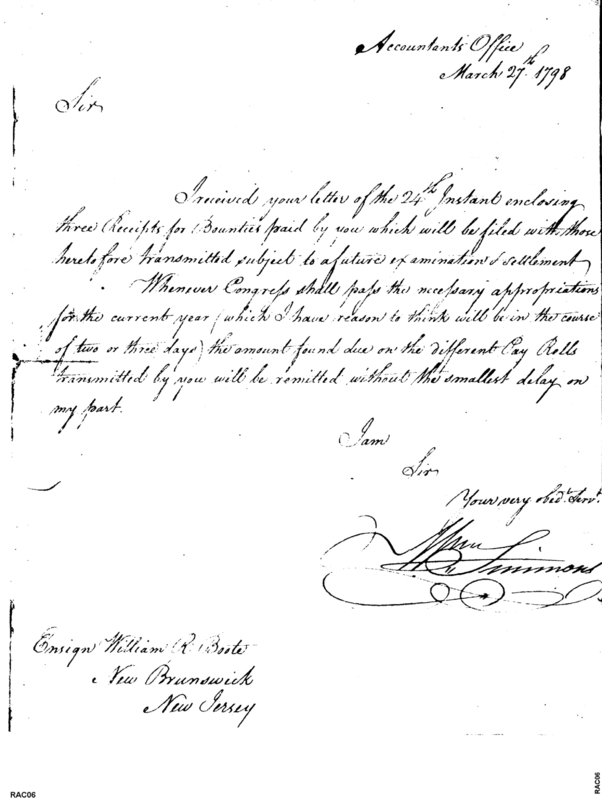 Accountants Office
March 27th 1798
Sir
I received your letter of the 24th Instant enclosing
three Receipts for Bounties paid by you which will be filed with those
heretofore transmitted subject to a future examination & settlement
Whenever Congress shall pass the necessary appropriations
for the current year (which I have reason to think will be in the course
of two or three days) the amount found due on the different Pay Rolls
transmitted by you will be remitted without the smallest delay on
my part.
I am
Sir
Your very obedt. Servt.
Wm Simmons
Ensign William R. Boote
New Brunswick
New Jersey
RAC06
RAC06